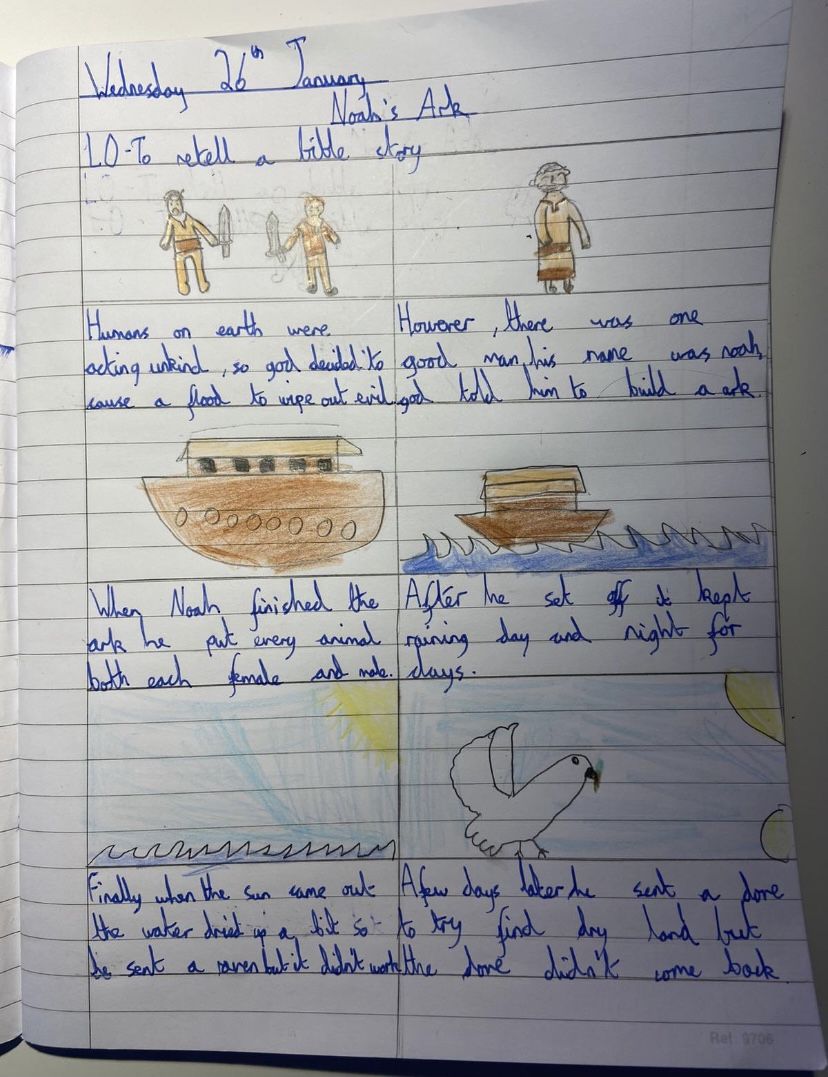 Wednesday 26th January
Noah's Ark
LO-To retell a bible story
Humans on earth were
acting unkind, so god decided to
cause a flood to wipe out evil.
However, there was one
good man, his name was noah,
god told him to build a ark.
When Noah finished the
ark he put every animal
both each female and male.
After he set off it kept
raining day and night for
days.
Finally when the sun came out
the water dried up a bit so
he sent a raven but it didn't work
A few days later he sent a dove
to try find dry land but
the dove didn't come back.
Ref: 9706